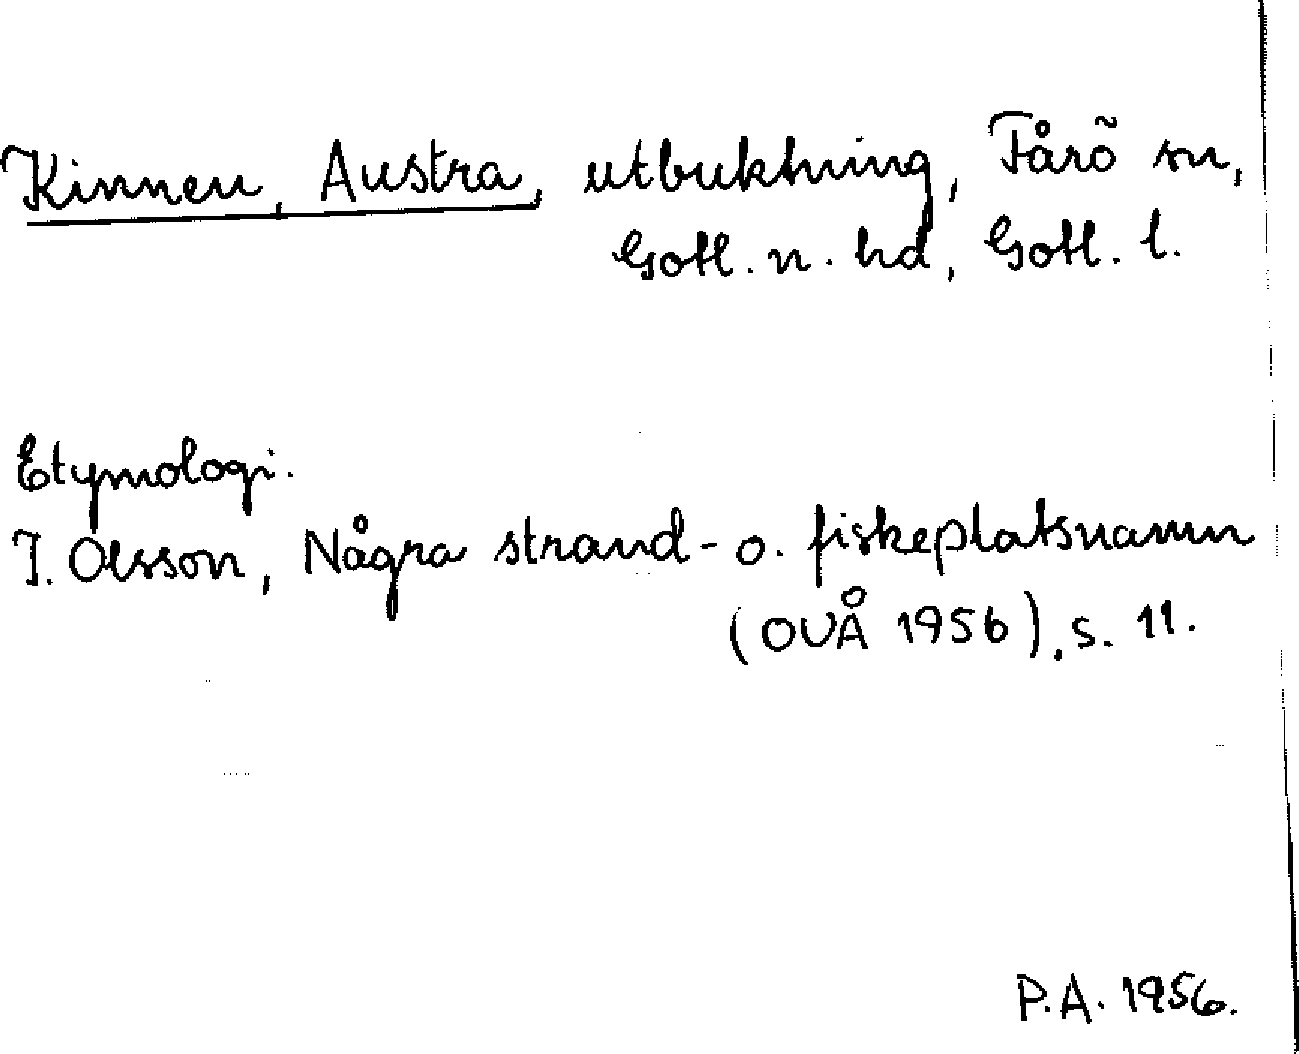 Kinnen, Austra, utbuktning, Fårö sn,
Gotl. n. hd, Gotl. l.
Etymologi.
I. Olsson, Några strand- o. fiskeplatsnamn
(OUÅ 1956), s. 11.
P.A. 1956.